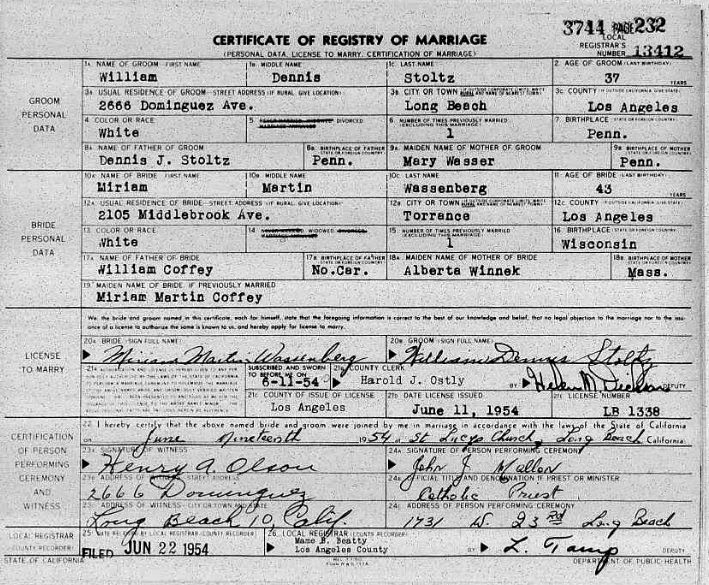 3744 PAGE 232
CERTIFICATE OF REGISTRY OF MARRIAGE
LOCAL REGISTRAR'S NUMBER 13412
(PERSONAL DATA, LICENSE TO MARRY, CERTIFICATION OF MARRIAGE)
GROOM PERSONAL DATA
1A. NAME OF GROOM—FIRST NAME 1B. MIDDLE NAME 1C. LAST NAME 2. AGE OF GROOM (LAST BIRTHDAY)
William Dennis Stoltz 37 YEARS
3A. USUAL RESIDENCE OF GROOM—STREET ADDRESS (IF RURAL, GIVE LOCATION) 3B. CITY OR TOWN 3C. COUNTY
2666 Dominguez Ave. Long Beach Los Angeles
4. COLOR OR RACE 5. DIVORCED 6. NUMBER OF TIMES PREVIOUSLY MARRIED (EXCLUDING THIS MARRIAGE) 7. BIRTHPLACE
White 1 Penn.
8A. NAME OF FATHER OF GROOM 8B. BIRTHPLACE OF FATHER 9A. MAIDEN NAME OF MOTHER OF GROOM 9B. BIRTHPLACE OF MOTHER
Dennis J. Stoltz Penn. Mary Wasser Penn.
BRIDE PERSONAL DATA
10A. NAME OF BRIDE—FIRST NAME 10B. MIDDLE NAME 10C. LAST NAME 11. AGE OF BRIDE (LAST BIRTHDAY)
Miriam Martin Wassenberg 43 YEARS
12A. USUAL RESIDENCE OF BRIDE—STREET ADDRESS (IF RURAL, GIVE LOCATION) 12B. CITY OR TOWN 12C. COUNTY
2105 Middlebrook Ave. Torrance Los Angeles
13. COLOR OR RACE 14. WIDOWED 15. NUMBER OF TIMES PREVIOUSLY MARRIED (EXCLUDING THIS MARRIAGE) 16. BIRTHPLACE
White 1 Wisconsin
17A. NAME OF FATHER OF BRIDE 17B. BIRTHPLACE OF FATHER 18A. MAIDEN NAME OF MOTHER OF BRIDE 18B. BIRTHPLACE OF MOTHER
William Coffey No.Car. Alberta Winnek Mass.
19. MAIDEN NAME OF BRIDE, IF PREVIOUSLY MARRIED
Miriam Martin Coffey
We, the bride and groom named in this certificate, each for himself, state that the foregoing information is correct to the best of our knowledge and belief, that no legal objection to the marriage nor to the issuance of a license to authorize the same is known to us, and hereby apply for license to marry.
LICENSE TO MARRY
20A. BRIDE (SIGN FULL NAME) 20B. GROOM (SIGN FULL NAME)
Miriam Martin Wassenberg William Dennis Stoltz
SUBSCRIBED AND SWORN TO BEFORE ME ON COUNTY CLERK
6-11-54 Harold J. Ostly BY Helen M. DEPUTY
21C. COUNTY OF ISSUE OF LICENSE DATE LICENSE ISSUED LICENSE NUMBER
Los Angeles June 11, 1954 LB 1338
CERTIFICATION OF PERSON PERFORMING CEREMONY AND WITNESS
22. I hereby certify that the above named bride and groom were joined by me in marriage in accordance with the laws of the State of California
on June Nineteenth 1954 at St Lucys Church, Long Beach, California.
23A. SIGNATURE OF WITNESS 24A. SIGNATURE OF PERSON PERFORMING CEREMONY
Henry A. Olson John J Mallon
ADDRESS OF WITNESS—STREET ADDRESS OFFICIAL TITLE AND DENOMINATION IF PRIEST OR MINISTER
2666 Dominguez Catholic Priest
ADDRESS OF WITNESS—CITY OR TOWN AND STATE ADDRESS OF PERSON PERFORMING CEREMONY
Long Beach 10, Calif. 1731 W. 23rd Long Beach
LOCAL REGISTRAR (COUNTY RECORDER)
25. DATE RECEIVED BY LOCAL REGISTRAR (COUNTY RECORDER) 26. LOCAL REGISTRAR (COUNTY RECORDER)
FILED JUN 22 1954 Mame B. Beatty
Los Angeles County BY DEPUTY
STATE OF CALIFORNIA DEPARTMENT OF PUBLIC HEALTH